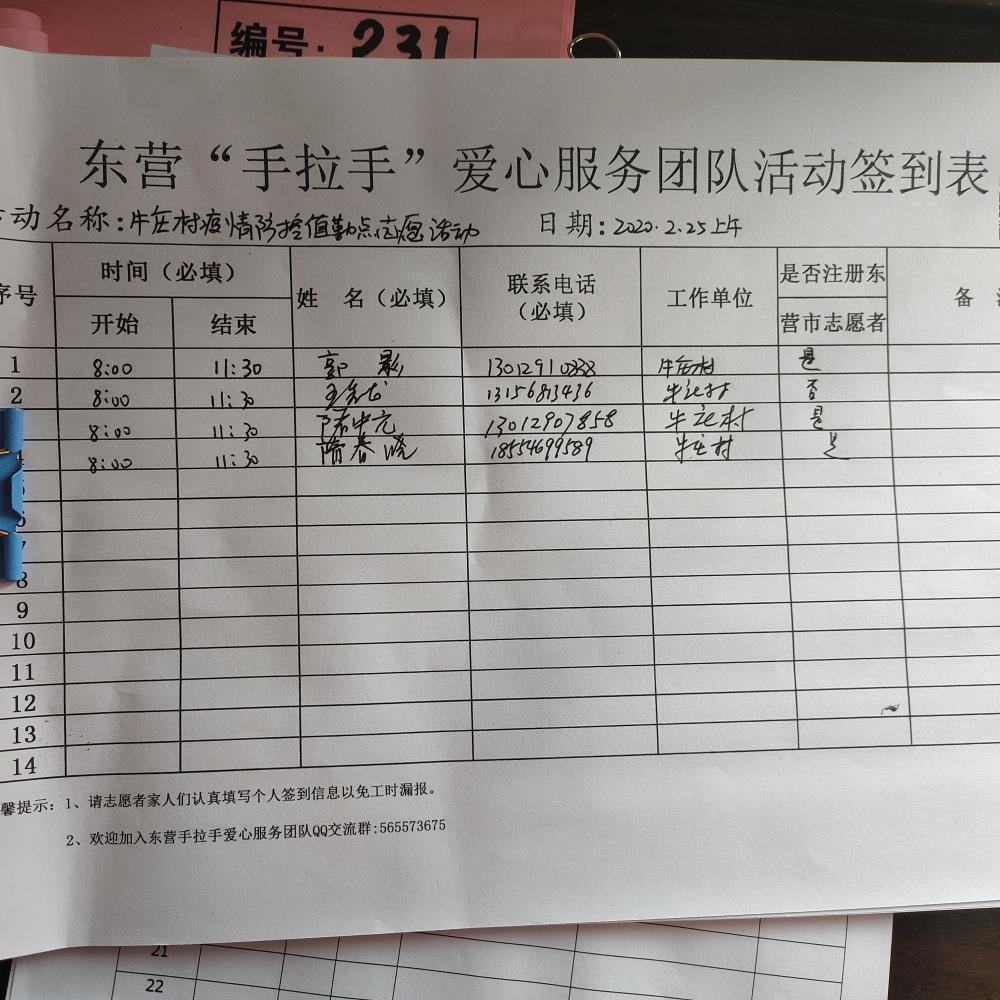 编号: 231
东营“手拉手”爱心服务团队活动签到表
动名称:牛庄村疫情防控值勤点志愿活动 日期:2020.2.25上午
序号 时间(必填) 姓 名(必填) 联系电话(必填) 工作单位 是否注册东营市志愿者 备
开始 结束
1 8:00 11:30 郭 影 13012910338 牛庄村 是
2 8:00 11:30 13156813436 牛庄村 否
8:00 11:30 陈中亮 13012907858 牛庄村 是
4 8:00 11:30 隋春晓 18554699589 牛庄村 是
5
6
7
8
9
10
11
12
13
14
馨提示:1、请志愿者家人们认真填写个人签到信息以免工时漏报。
2、欢迎加入东营手拉手爱心服务团队QQ交流群:565573675
21
22